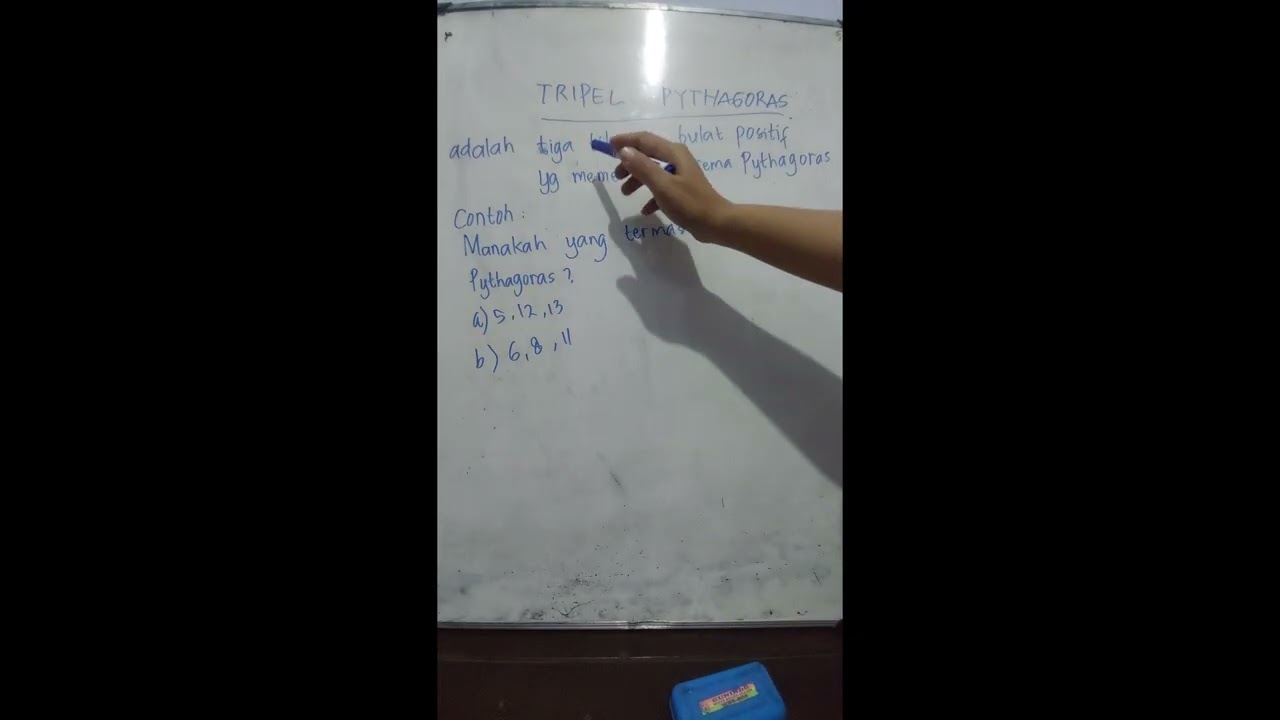 TRIPEL PYTHAGORAS
adalah tiga bulat positif
yg Pythagoras
Contoh :
Manakah yang
Pythagoras ?
a) 5, 12, 13
b) 6, 8, 11